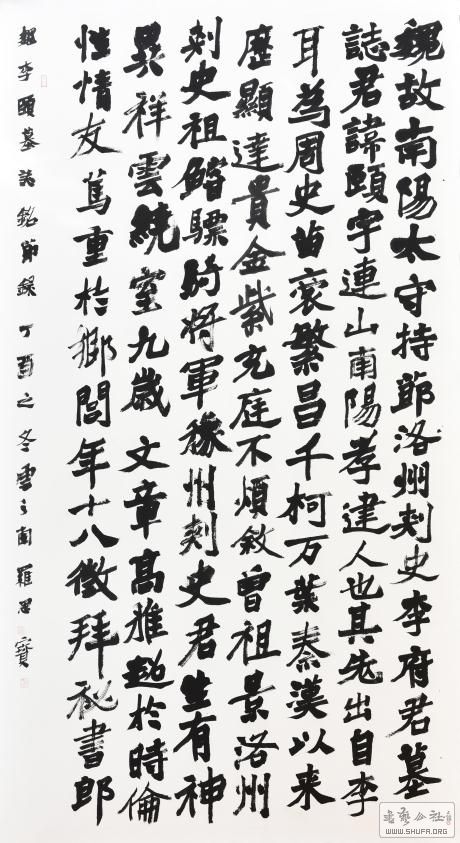 魏故南陽太守持節洛州刾史李府君墓
誌君諱頤字連山南陽孝建人也其先出自李
耳為周史苗裔繁昌千柯万葉秦漢以来
歷顯達貴金紫充庭不煩敘曾祖景洛州
刾史祖鰭驃騎將軍豫州刾史君生有神
異祥雲繞室九歲文章高雅超於時倫
性情友篤重於鄉閭年十八徵拜秘書郎
魏李頤墓誌銘節録丁酉之冬雪之南羅
書藝公社
WWW.SHUFA.ORG